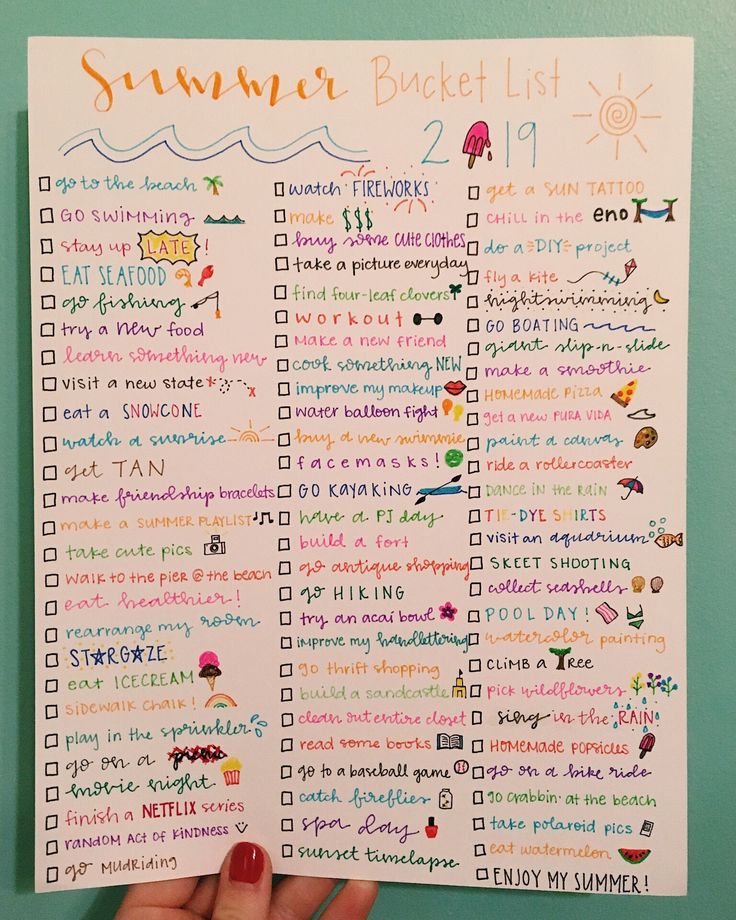 Summer Bucket List
2019
go to the beach
GO SWIMMING
stay up LATE!
EAT SEAFOOD
go fishing
try a new food
learn something new
visit a new state
eat a SNOWCONE
watch a sunrise
get TAN
make friendship bracelets
make a SUMMER PLAYLIST
take cute pics
WALK TO THE PIER @ THE BEACH
eat healthier!
rearrange my room
STARGAZE
eat ICECREAM
SIDEWALK CHALK!
play in the sprinkler
go on a
movie night
finish a NETFLIX series
RANDOM ACT OF KINDNESS
go MUDRIDING
watch FIREWORKS
make $$$
buy some cute clothes
take a picture everyday
find four-leaf clovers
workout
Make a new friend
cook something NEW
improve my makeup
water balloon fight
buy a new swimmie
facemasks!
GO KAYAKING
have a PJ day
build a fort
go antique shopping
go HIKING
try an acaí bowl
improve my handlettering
go thrift shopping
build a sandcastle
clean out entire closet
read some books
go to a baseball game
catch fireflies
spa day
sunset timelapse
get a SUN TATTOO
CHILL in the eno
do a DIY project
fly a kite
nightswimming
GO BOATING
giant slip-n-slide
make a smoothie
HOMEMADE PIZZA
get a new PURA VIDA
paint a canvas
ride a rollercoaster
DANCE IN THE RAIN
TIE-DYE SHIRTS
visit an aquarium
SKEET SHOOTING
collect seashells
POOL DAY!
watercolor painting
CLIMB A TREE
pick wildflowers
sing in the RAIN
HOMEMADE POPSICLES
go on a bike ride
go crabbin' at the beach
take polaroid pics
eat watermelon
ENJOY MY SUMMER!